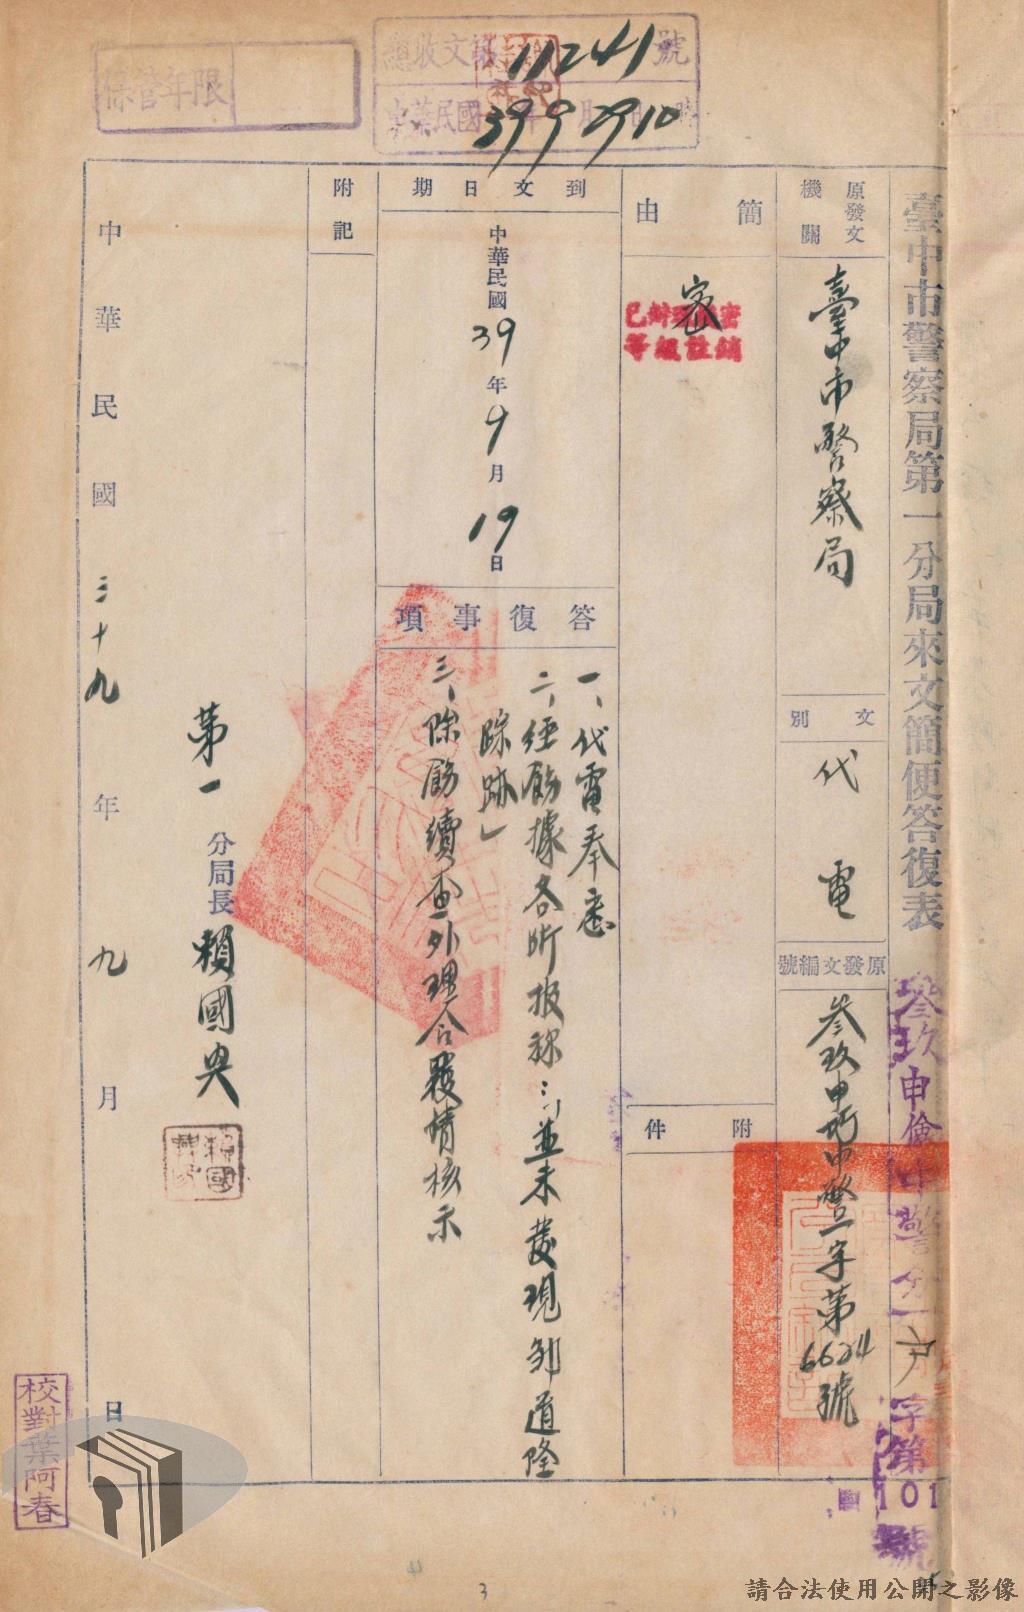 總收文 11241 號
中華民國 39 9 29 10 時
保管年限
臺中市警察局第一分局來文簡便答復表
參玖申儉中警分一戶字第101號
原發文機關
臺中市警察局
文別
代電
原發文編號
參玖申巧中警一字第6624號
簡由
密
已辦理機密
等級註銷
附件
到文日期
中華民國39年9月19日
答復事項
一、代電奉悉
二、經飭據各所报称:「並未發現鄒道隆
踪跡」
三、除飭續查外理合覆請核示
附記
第一分局長賴國興
中華民國三十九年九月 日
校對葉阿春
3
請合法使用公開之影像